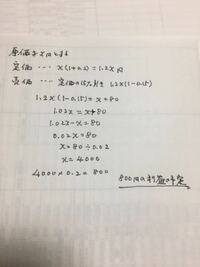 原価をx円とする
定価 … x(1+0.2)=1.2x円
売価 … 定価の15%引き 1.2x(1-0.15)
1.2x(1-0.15)=x+80
1.02x=x+80
1.02x-x=80
0.02x=80
x=80÷0.02
x=4000
4000×0.2=800
800円の利益の予定